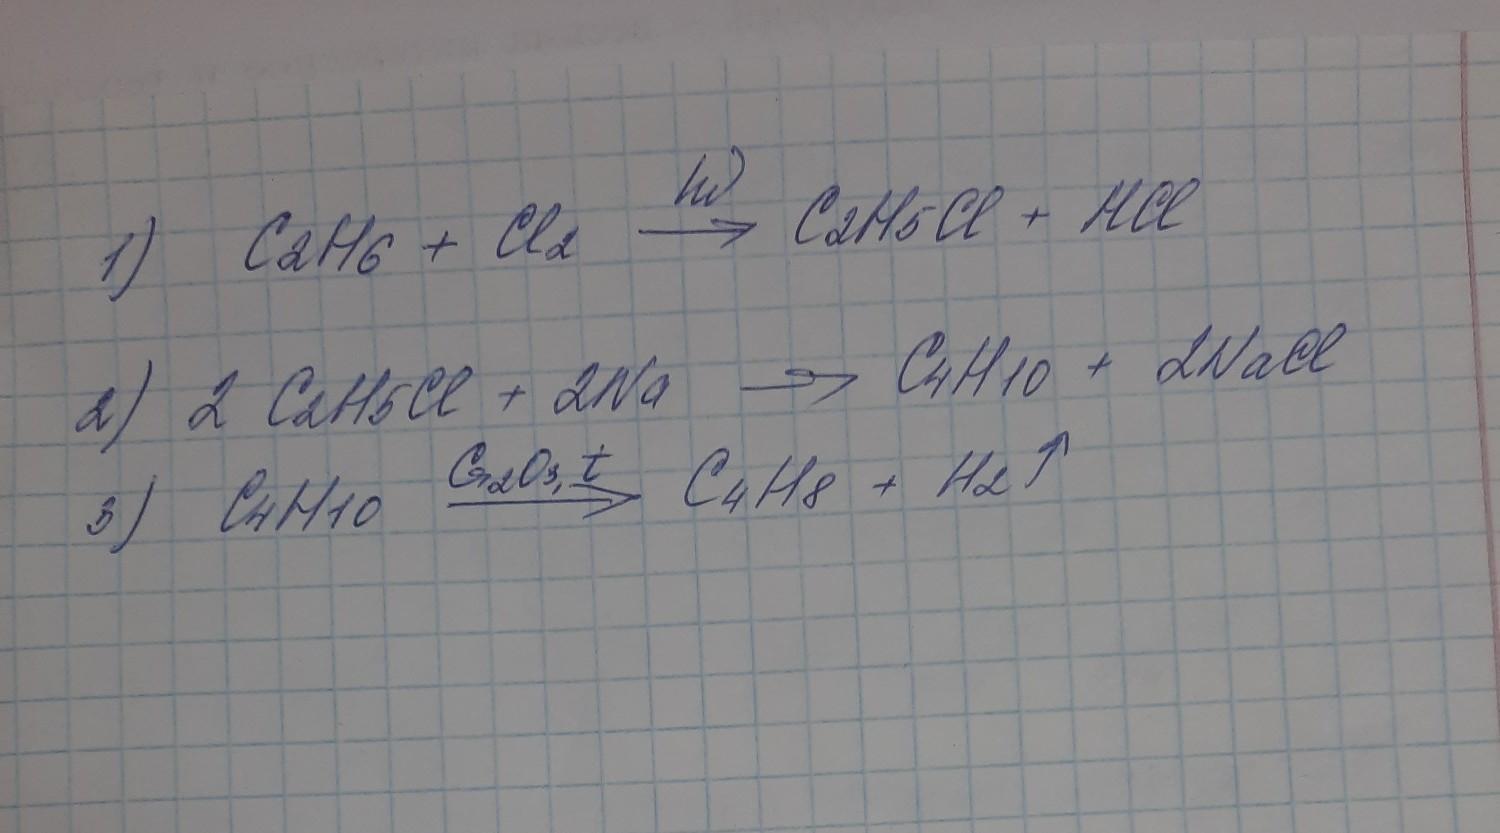 1) C2H6 + Cl2 hν→ C2H5Cl + HCl
2) 2 C2H5Cl + 2Na → C4H10 + 2NaCl
3) C4H10 Cr2O3, t→ C4H8 + H2↑